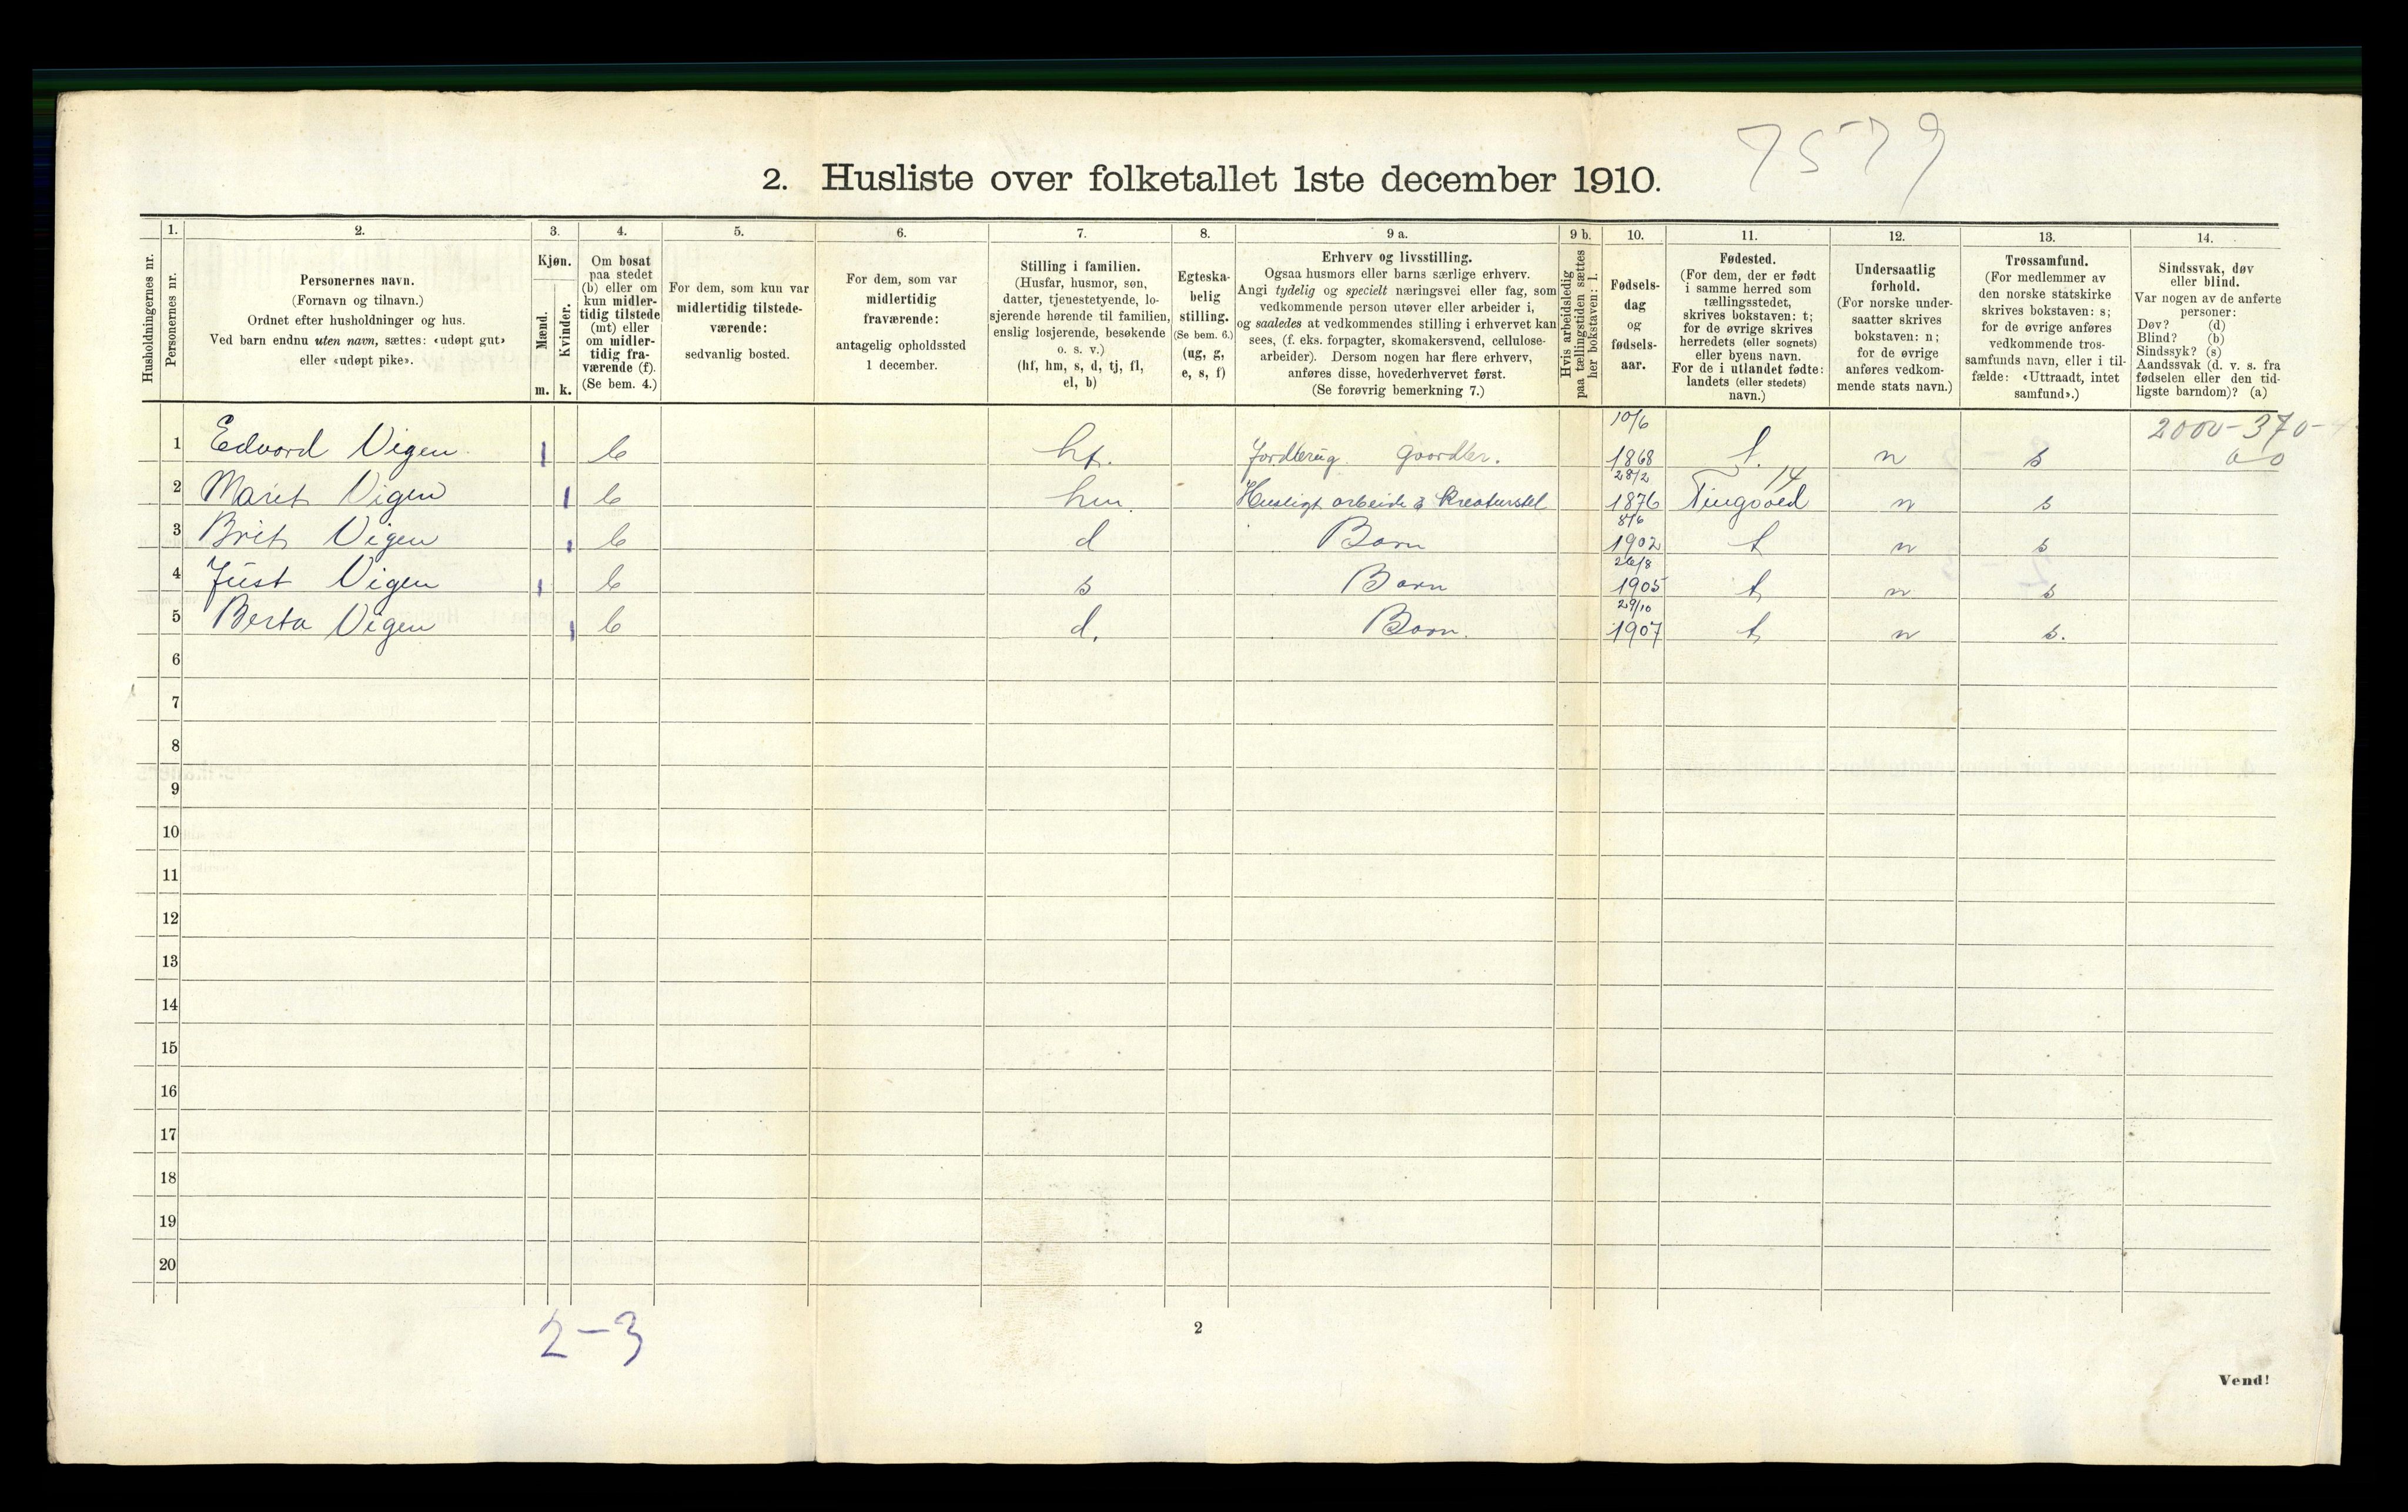 7579
2. Husliste over folketallet 1ste december 1910.
Husholdningernes nr.
1.
Personernes nr.
2.
Personernes navn.
(Fornavn og tilnavn.)
Ordnet efter husholdninger og hus.
Ved barn endnu uten navn, sættes: «udøpt gut»
eller «udøpt pike».
3.
Kjøn.
Mænd.
Kvinder.
m. k.
4.
Om bosat
paa stedet
(b) eller om
kun midler-
tidig tilstede
(mt) eller
om midler-
tidig fra-
værende (f).
(Se bem. 4.)
5.
For dem, som kun var
midlertidig tilstede-
værende:
sedvanlig bosted.
6.
For dem, som var
midlertidig
fraværende:
antagelig opholdssted
1 december.
7.
Stilling i familien.
(Husfar, husmor, søn,
datter, tjenestetyende, lo-
sjerende hørende til familien,
enslig losjerende, besøkende
o. s. v.)
(hf, hm, s, d, tj, fl,
el, b)
8.
Egteska-
belig
stilling.
(Se bem. 6.)
(ug, g,
e, s, f)
9 a.
Erhverv og livsstilling.
Ogsaa husmors eller barns særlige erhverv.
Angi tydelig og specielt næringsvei eller fag, som
vedkommende person utøver eller arbeider i,
og saaledes at vedkommendes stilling i erhvervet kan
sees, (f. eks. forpagter, skomakersvend, cellulose-
arbeider). Dersom nogen har flere erhverv,
anføres disse, hovederhvervet først.
(Se forøvrig bemerkning 7.)
9 b.
Hvis arbeidsledig
paa tællingstiden sættes
her bokstaven: l.
10.
Fødsels-
dag
og
fødsels-
aar.
11.
Fødested.
(For dem, der er født
i samme herred som
tællingsstedet,
skrives bokstaven: t;
for de øvrige skrives
herredets (eller sognets)
eller byens navn.
For de i utlandet fødte:
landets (eller stedets)
navn.)
12.
Undersaatlig
forhold.
(For norske under-
saatter skrives
bokstaven: n;
for de øvrige
anføres vedkom-
mende stats navn.)
13.
Trossamfund.
(For medlemmer av
den norske statskirke
skrives bokstaven: s;
for de øvrige anføres
vedkommende tros-
samfunds navn, eller i til-
fælde: «Uttraadt, intet
samfund».)
14.
Sindssvak, døv
eller blind.
Var nogen av de anførte
personer:
Døv? (d)
Blind? (b)
Sindssyk? (s)
Aandssvak (d. v. s. fra
fødselen eller den tid-
ligste barndom)? (a)
1 Edvard Vigen 1 b hf. Jordbrug Gaardbr. 10/6 1868 t. n s 2000-370-4
2 Marit Vigen 1 b hm. Husligt arbeide & Kreaturstel 28/2 1876 Tingvoll 14 n s
3 Brit Vigen 1 b d Barn 8/6 1902 t n s
4 Just Vigen 1 b s Barn 26/8 1905 t n s
5 Berta Vigen 1 b d. Barn. 29/10 1907 t n s.
6
7
8
9
10
11
12
13
14
15
16
17
18
19
20
2-3
2
Vend!